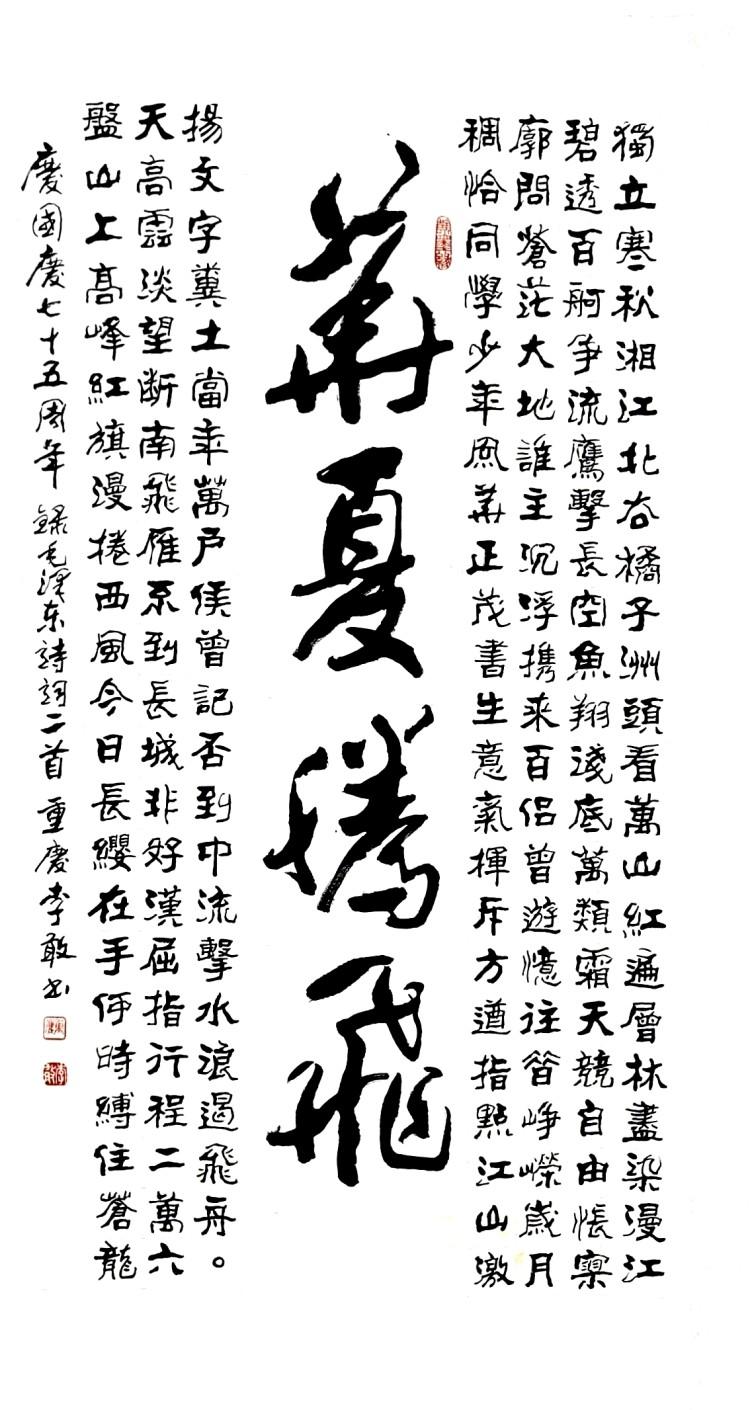 獨立寒秋湘江北去橘子洲頭看萬山紅遍層林盡染漫江
碧透百舸争流鷹擊長空魚翔淺底萬類霜天競自由悵寥
廓問蒼茫大地誰主沉浮携来百侣曾遊憶往昔崢嶸歲月
稠恰同學少年風華正茂書生意氣揮斥方遒指點江山激
華夏騰飛
揚文字糞土當年萬户侯曾記否到中流擊水浪遏飛舟。
天高雲淡望断南飛雁不到長城非好漢屈指行程二萬六
盤山上高峰紅旗漫捲西風今日長纓在手何時縛住蒼龍
慶國慶七十五周年 錄毛澤东詩詞二首 重慶李敢书
李敢